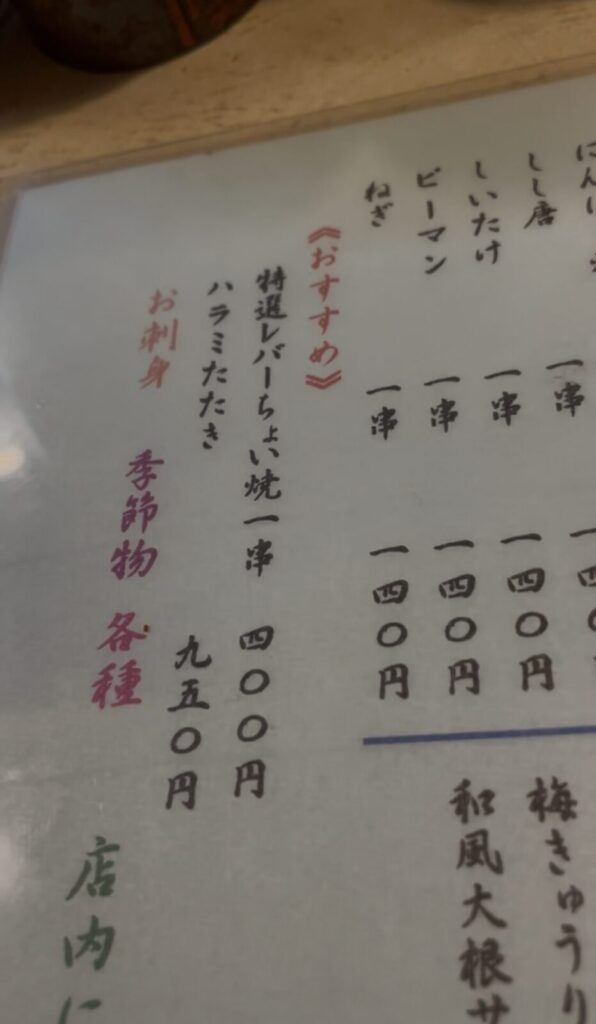 しし唐 一串
しいたけ 一串 一四〇円
ピーマン 一串 一四〇円
ねぎ 一串 一四〇円
《おすすめ》
特選レバーちょい焼一串 四〇〇円
ハラミたたき 九五〇円
お刺身 季節物 各種
梅きゅうり
和風大根サ
店内に